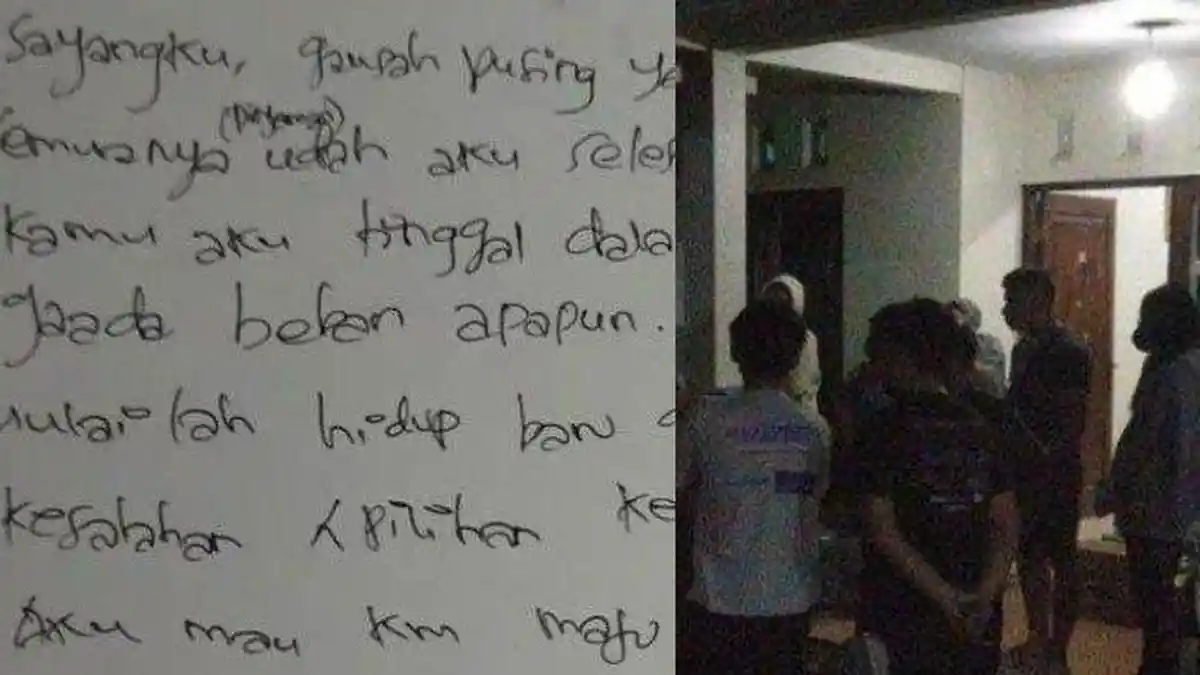 Sayangku, gausah pusing ya
emuanya udah aku seles
kamu aku tinggal dala
gaada beban apapun.
mulailah hidup baru
kesalahan pilihan ke
Aku mau km maju